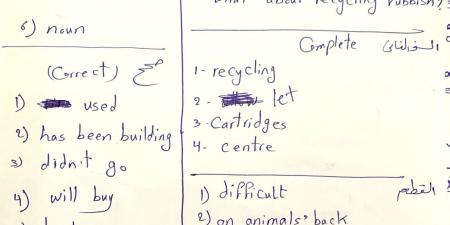 6) noun
(Correct) صحح
1) used
2) has been building
3) didn't go
4) will buy
what about recycling rubbish?
Complete
1- recycling
2- let
3- Cartridges
4- centre
1) difficult القطع
2) on animals' back